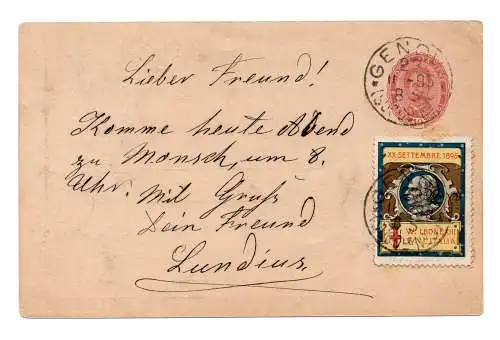 Lieber Freund!
Komme heute Abend
zu Monsch, um 8.
Uhr. Mit Gruß
Dein Freund
Lundius.
GENOVA
XX SETTEMBRE 1895